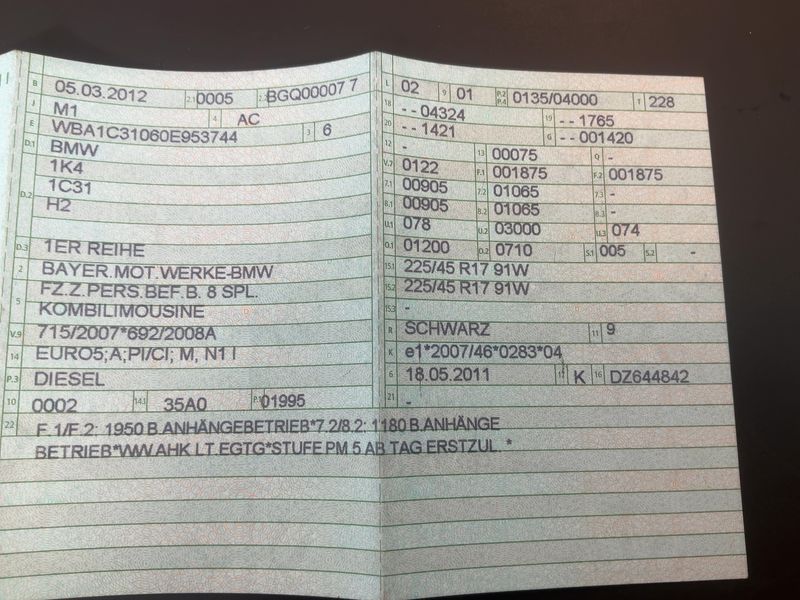 B 05.03.2012 2.1 0005 BGQ00007 7
J M1 4 AC
E WBA1C31060E953744 3 6
D.1 BMW
1K4
D.2 1C31
H2
D.3 1ER REIHE
2 BAYER.MOT.WERKE-BMW
5 FZ.Z.PERS.BEF.B. 8 SPL.
KOMBILIMOUSINE
V.9 715/2007*692/2008A
14 EURO5;A;PI/CI; M, N1 I
P.3 DIESEL
10 0002 14.1 35A0 P.1 01995
L 02 9 01 P.2 P.4 0135/04000 T 228
18 - - 04324 19 - - 1765
20 - - 1421 G - - 001420
12 - 13 00075 Q -
V.7 0122 F.1 001875 F.2 001875
7.1 00905 7.2 01065 7.3 -
8.1 00905 8.2 01065 8.3 -
U.1 078 U.2 03000 U.3 074
O.1 01200 O.2 0710 S.1 005 S.2 -
15.1 225/45 R17 91W
15.2 225/45 R17 91W
15.3 -
R SCHWARZ 11 9
K e1*2007/46*0283*04
6 18.05.2011 17 K 16 DZ644842
21 -
22 F.1/F.2: 1950 B.ANHÄNGEBETRIEB*7.2/8.2: 1180 B.ANHÄNGE
BETRIEB*WW.AHK LT.EGTG*STUFE PM 5 AB TAG ERSTZUL. *